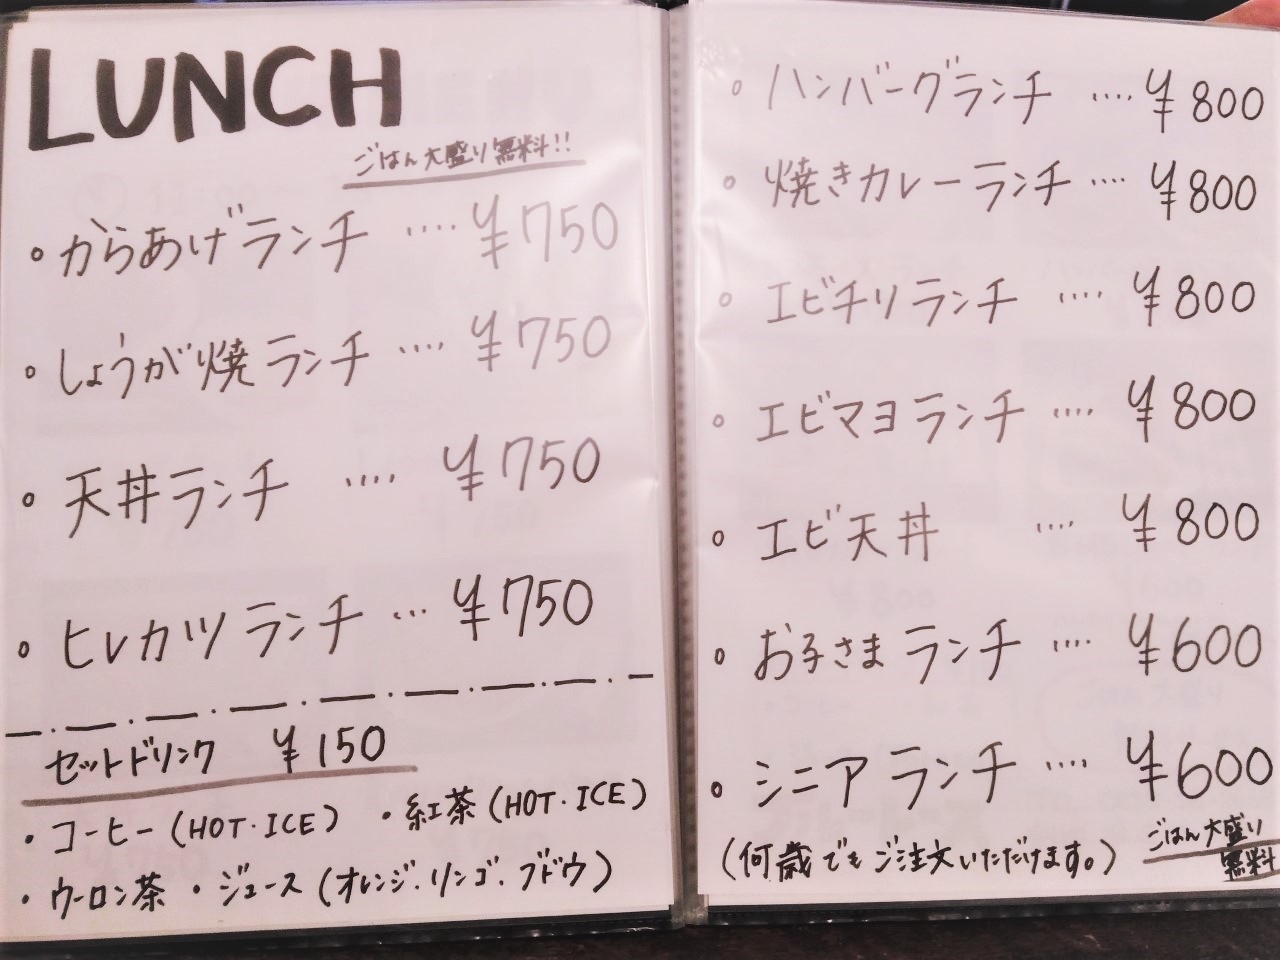 LUNCH
ごはん大盛り無料!!
。からあげランチ ‥‥ ¥750
。しょうが焼ランチ ‥‥ ¥750
。天丼ランチ ‥‥ ¥750
。ヒレカツランチ … ¥750
セットドリンク ¥150
・コーヒー(HOT・ICE) ・紅茶(HOT・ICE)
・ウーロン茶 ・ジュース(オレンジ.リンゴ.ブドウ)
。ハンバーグランチ ‥‥ ¥800
。焼きカレーランチ ‥‥ ¥800
。エビチリランチ ‥‥ ¥800
。エビマヨランチ ‥‥ ¥800
。エビ天丼 ‥‥ ¥800
。お子さまランチ ‥‥ ¥600
。シニアランチ ‥‥ ¥600
(何歳でもご注文いただけます。)
ごはん大盛り
無料